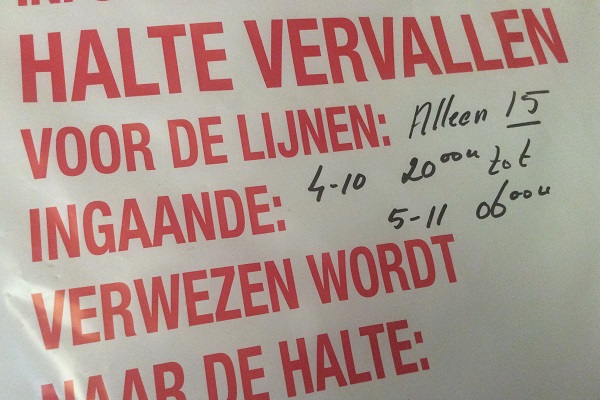 HALTE VERVALLEN
VOOR DE LIJNEN: Alleen 15
INGAANDE: 4-10 20⁰⁰u tot
5-11 06⁰⁰u
VERWEZEN WORDT
NAAR DE HALTE: